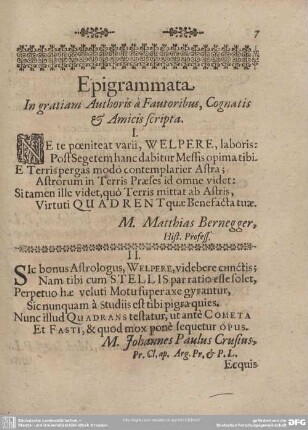 7
Epigrammata
In gratiam Authoris à Fautoribus, Cognatis
& Amicis scripta.
I.
NE te pœniteat varii, WELPERE, laboris:
Post Segetem hanc dabitur Messis opima tibi.
E Terris pergas modò contemplarier Astra;
Astrorum in Terris Præses id omne videt:
Si tamen ille videt, quô Terris mittat ab Astris,
Virtuti QUADRENT quæ Benefacta tuæ.
M. Matthias Bernegger,
Hist. Profess.
II.
SIc bonus Astrologus, WELPERE, videbere cunctis;
Nam tibi cum STELLIS par ratio esse solet,
Perpetuo hæ veluti Motu super axe gyrantur,
Sic nunquam à Studiis est tibi pigra quies.
Nunc illud QUADRANS testatur, ut antè COMETA
Et FASTI, & quod mox ponè sequetur OPUS.
M. Johannes Paulus Crusius,
Pr. Cl. ap. Arg. Pr. & P. L.
Ecquis